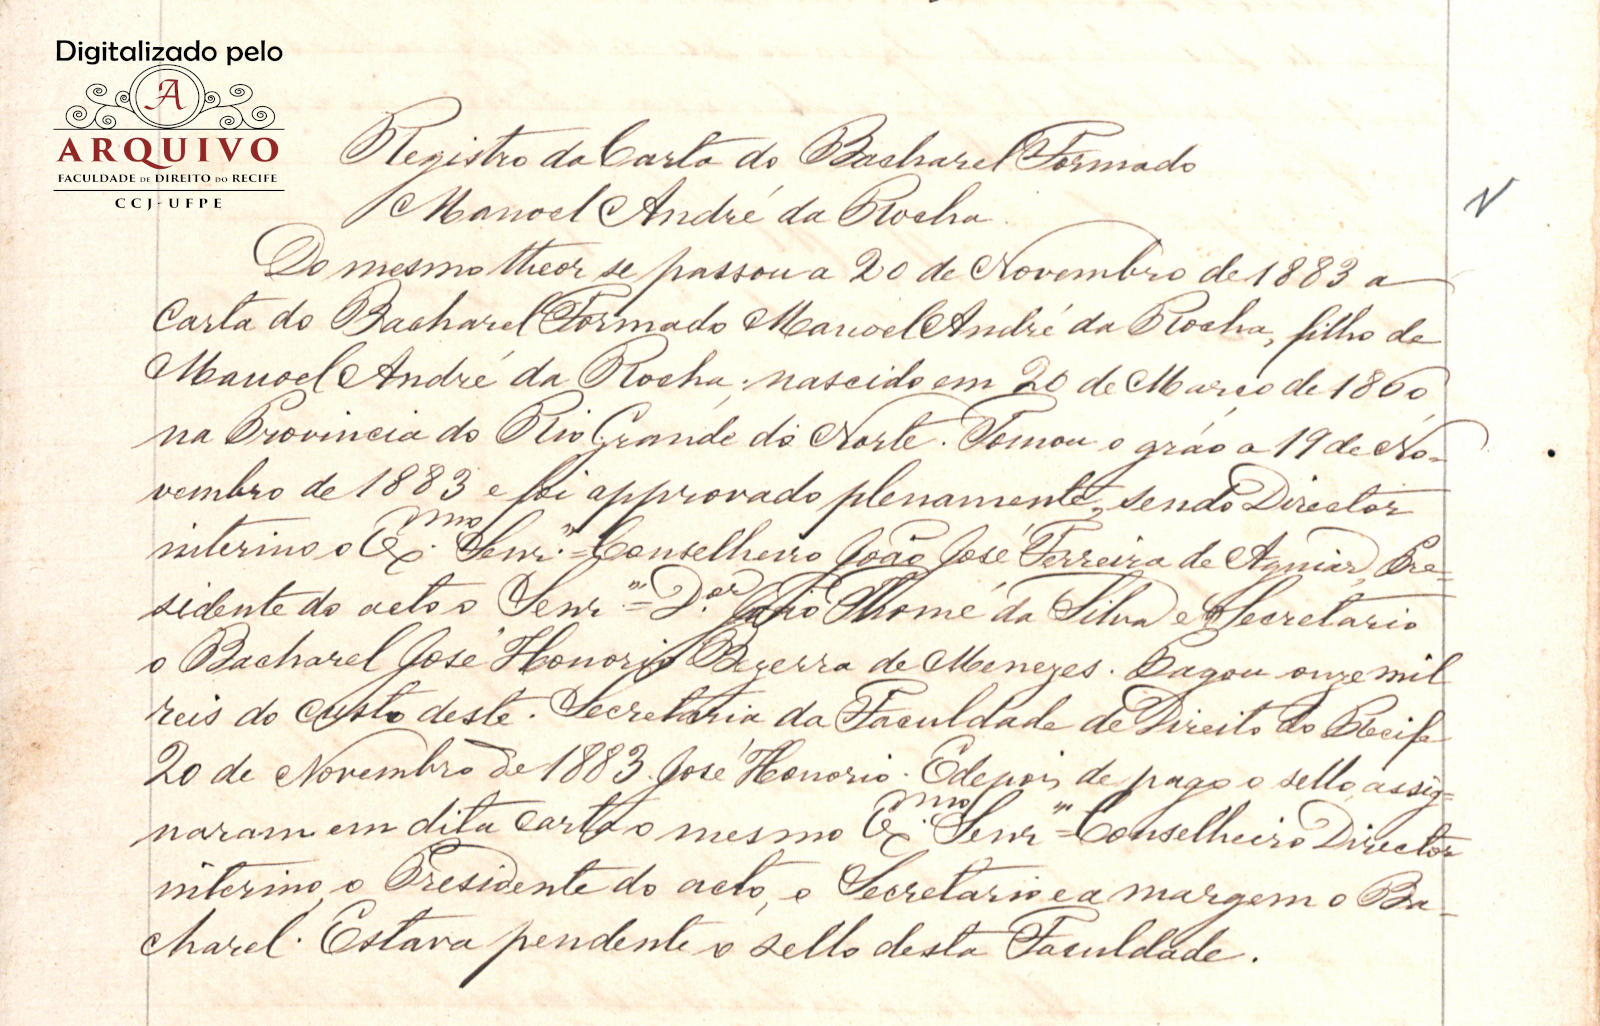 Digitalizado pelo
A
ARQUIVO
FACULDADE DE DIREITO DO RECIFE
CCJ-UFPE
Registro da Carta do Bacharel Formado
Manoel André da Rocha.
N
Do mesmo theor se passou a 20 de Novembro de 1883 a
Carta do Bacharel Formado Manoel André da Rocha, filho de
Manoel André da Rocha; nascido em 20 de Março de 1860
na Provincia do Rio Grande do Norte. Tomou o gráo a 19 de No-
vembro de 1883 e foi approvado plenamente, sendo Director
interino o Ex.mo Senr.= Conselheiro João José Ferreira de Aguiar, Pre=
sidente do acto o Senr = D.or Thomé da Silva e Secretario
o Bacharel José Honorio Bezerra de Menezes. Pagou onze mil
reis do custo deste. Secretaria da Faculdade de Direito do Recife
20 de Novembro de 1883. José Honorio. E depois de pago o sello, assig=
naram em dita carta o mesmo Ex.mo Senr = Conselheiro Director
interino, o Presidente do acto, o Secretario e a margem o Ba-
charel. Estava pendente o sello desta Faculdade.